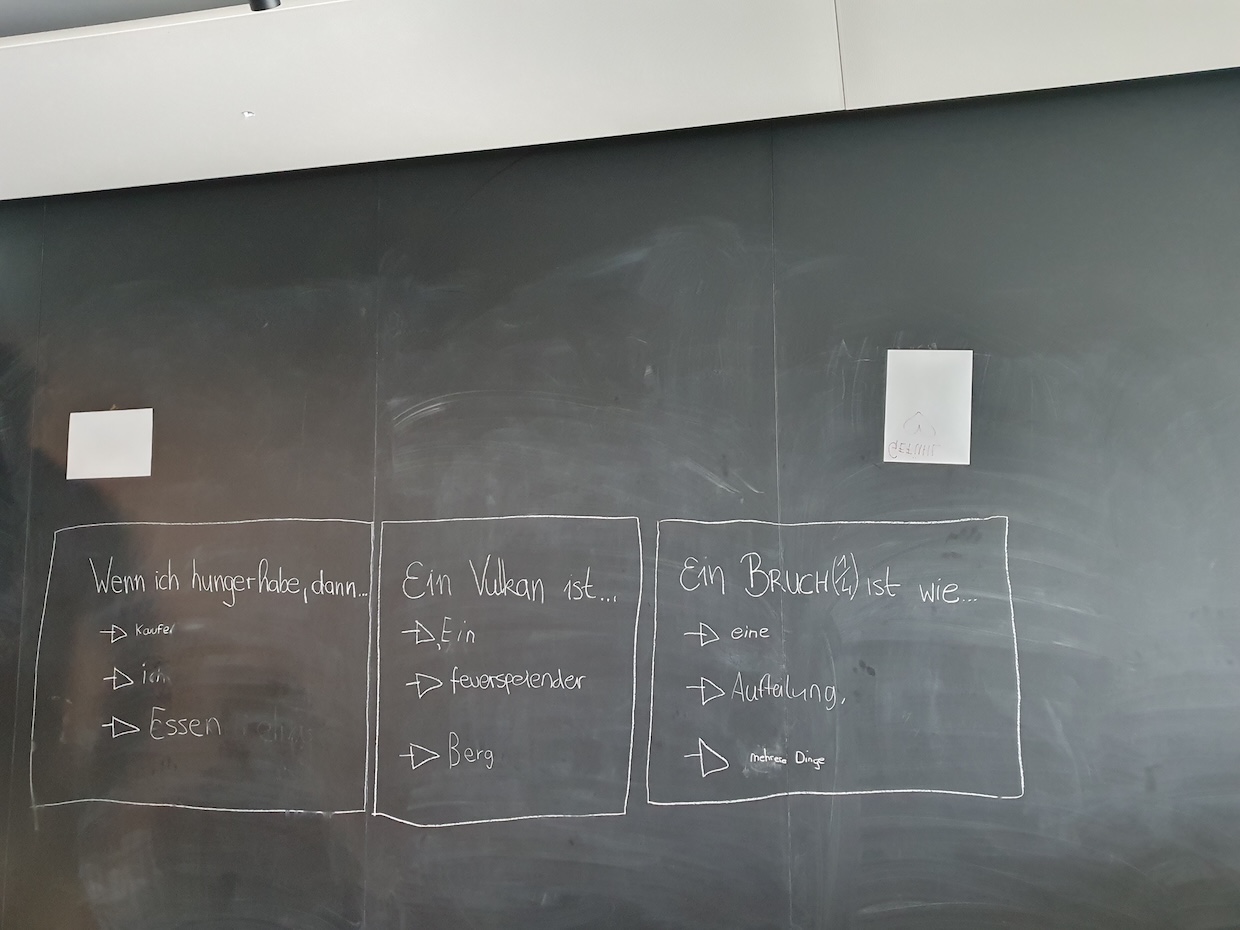 Wenn ich hunger habe, dann...
kaufe
ich
Essen
Ein Vulkan ist...
Ein
feuerspeiender
Berg
Ein BRUCH (1/4) ist wie...
eine
Aufteilung,
mehrere Dinge